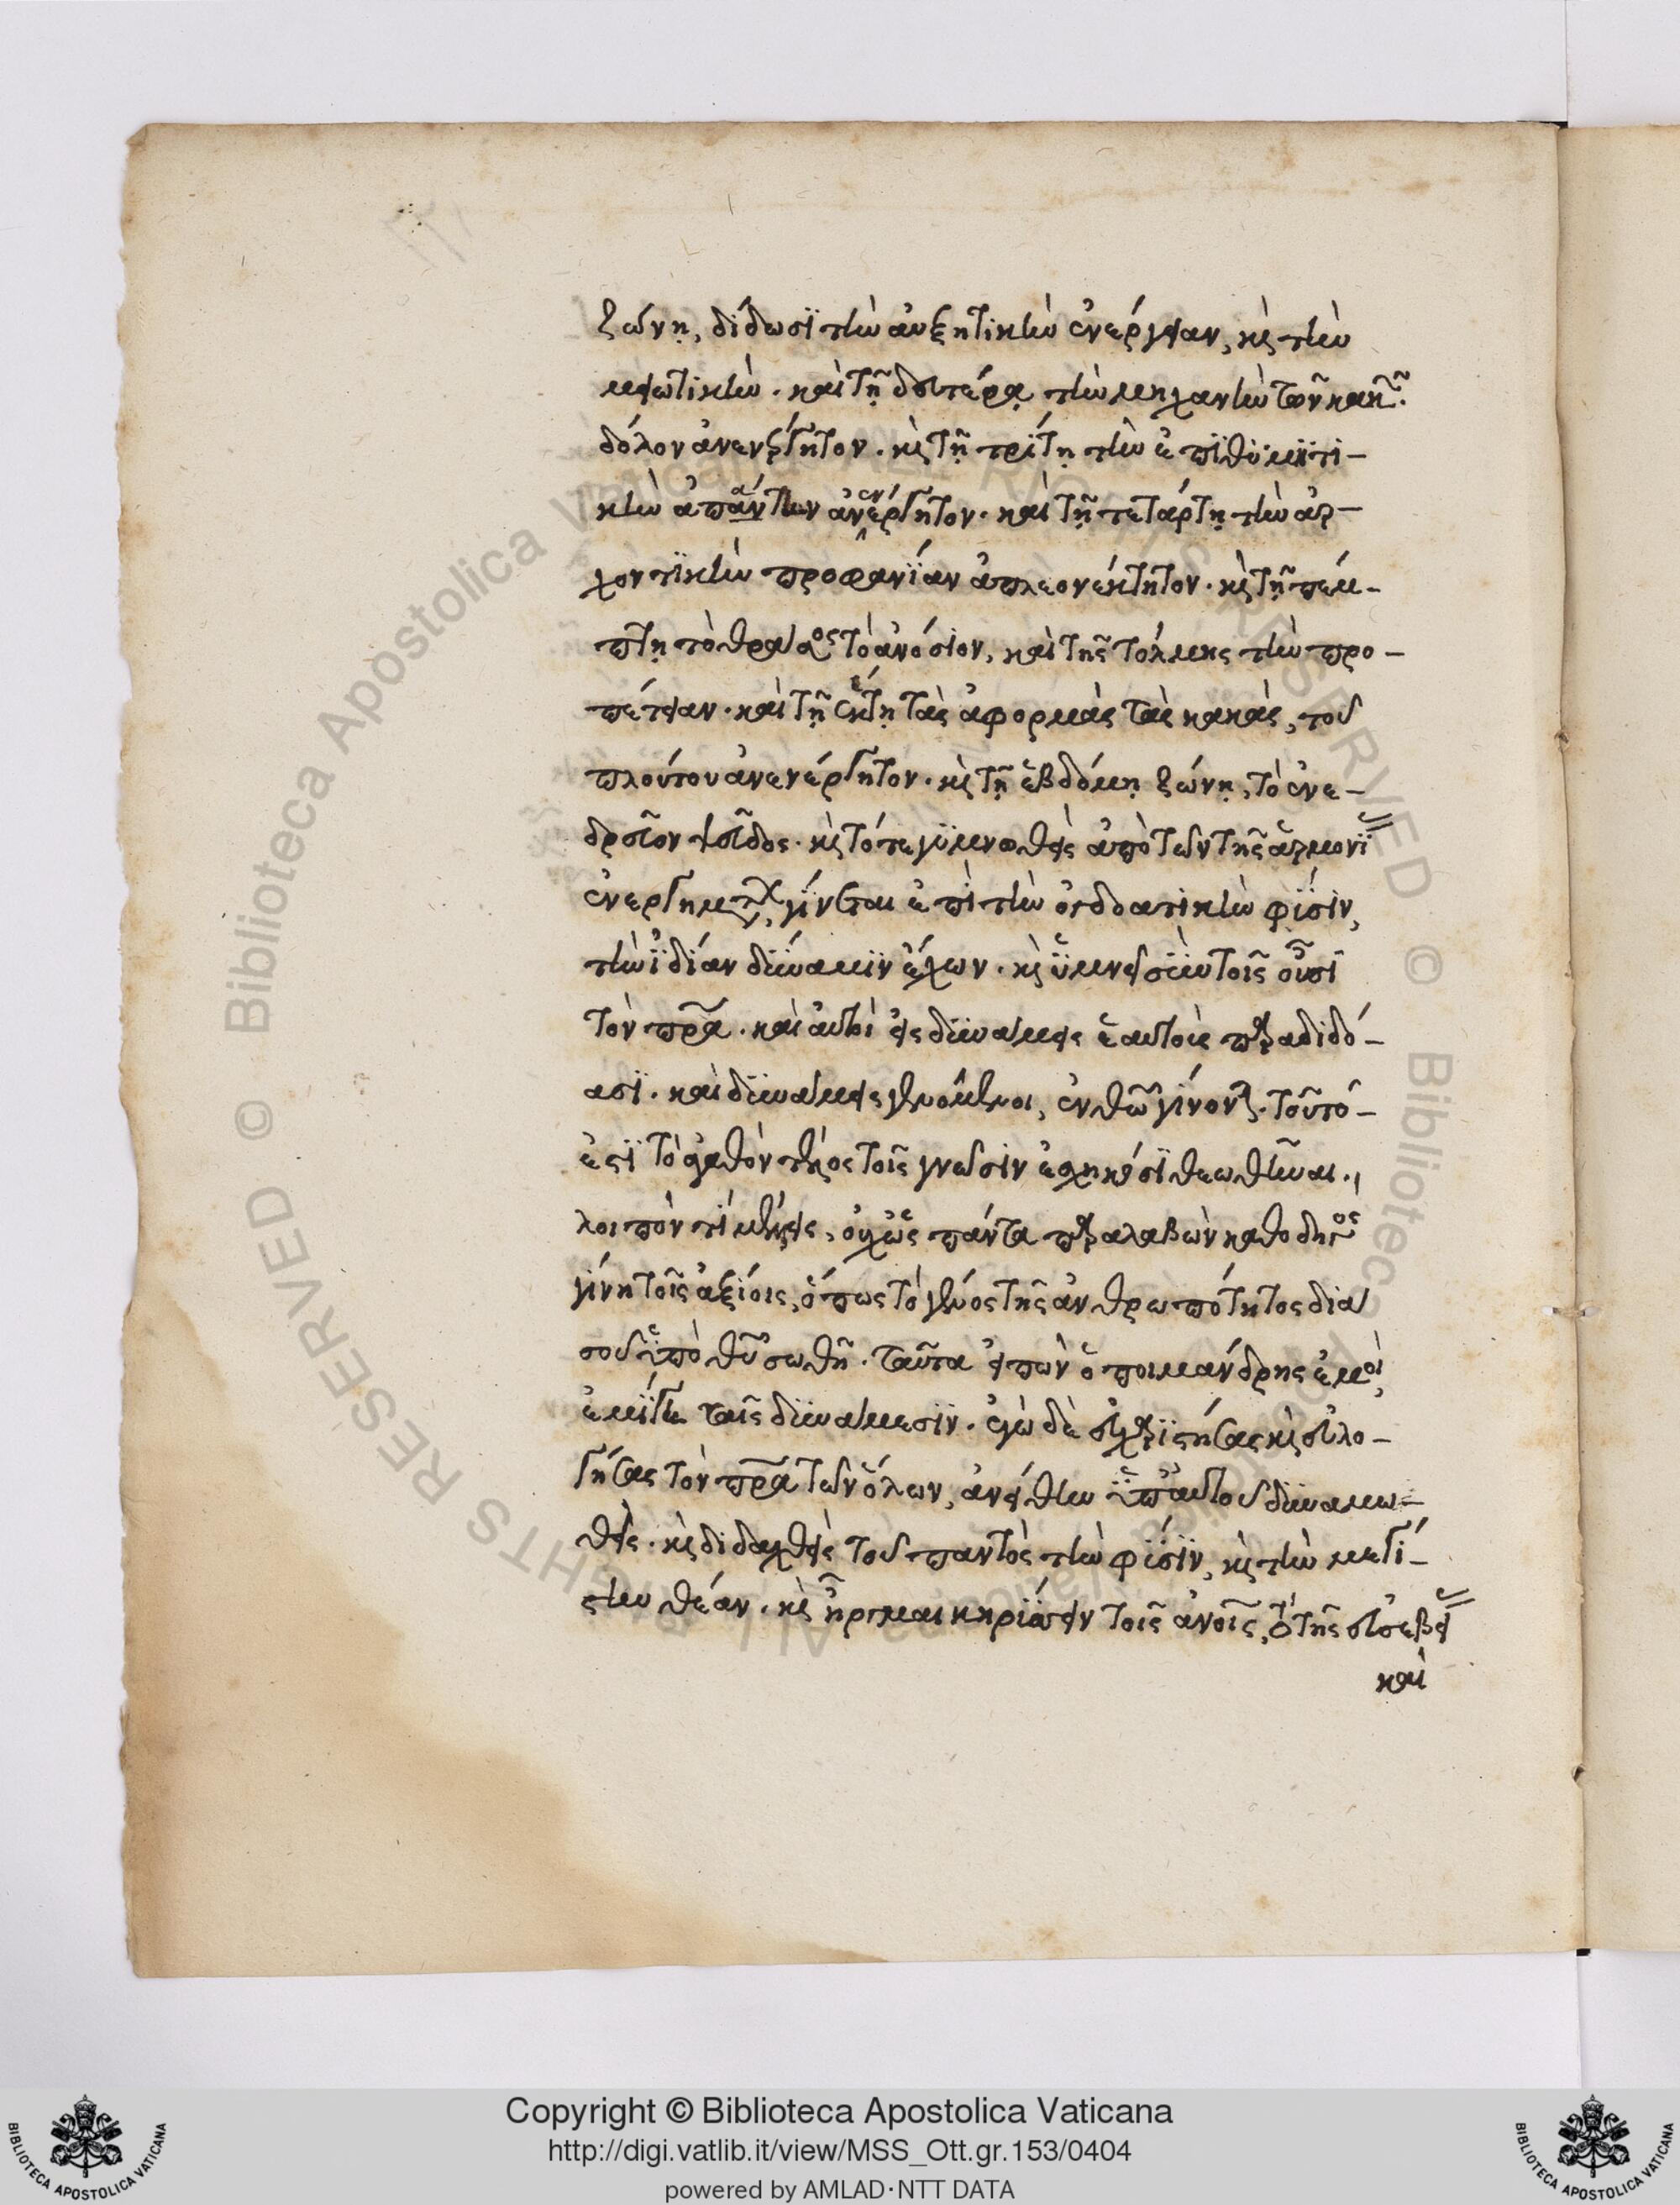 ζώνῃ, δίδωσϊ τὴν αὐξητικὴν ἐνέργειαν, κὶ τὴν
μειωτικὴν. καὶ τῇ δευτέρᾳ τὴν μηχανὴν τῶν κακῶν.
δόλον ἀνενέργητον. κὶ τῇ τρίτῃ τὴν ἐπϊθϋμητι-
κὴν ἀπάντην ἀνενέργητον. καὶ τῇ τετάρτῃ τὴν ἀρ-
χοντϊκὴν προφανΐαν ἀπλεονέκτητον. κὶ τῇ πέμ-
πτῃ τὸ θράσος τὸ ἀνόσιον, καὶ τῆς τόλμης τὴν προ-
πέτειαν. καὶ τῇ ἕκτῃ τὰς ἀφορμὰς τὰς κακὰς, τοῦ
πλούτου ἀνενέργητον. κὶ τῇ ἑβδόμῃ ζώνῃ, τὸ ἐνε-
δρεῦον ψεῦδος. κὶ τότε γϋμνωθεὶς ἀπὸ τῶν τῆς ἁρμονΐ
ἐνεργημάτων, γΐνεται ἐπὶ τὴν ὀγδοατικὴν φΰσιν,
τὴν ἰδΐαν δΰναμϊν ἔχων. κὶ ὑμνεῖ σὺν τοῖς οὖσϊ
τὸν πρα. καὶ αὐτοὶ εἰς δυνάμεις ἑαυτοὺς παραδιδό-
ασϊ. καὶ δυνάμεις γενόμενοι, ἐν θῶ γίνονται. τοῦτό-
ἐστϊ τὸ ἀγαθὸν τέλος τοῖς γνῶσιν ἐσχηκόσϊ θεωθῆναι.
λοιπὸν τί μέλλεις, οὐχ ὡς πάντα παραλαβὼν καθοδηγὸς
γίνῃ τοῖς ἀξίοις, ὅπως τὸ γένος τῆς ἀνθρωπότητος διὰ
σοῦ ὑπὸ θῦ σωθῇ. ταῦτα εἰπὼν ὁ ποιμάνδρης ἐμοὶ,
ἐμΐγη ταῖς δυνάμεσϊν. ἐγὼ δὲ εὐχαριστήσας κὶ εὐλο-
γήσας τὸν πρα τῶν ὅλων, ἀνείθην ὑπ' αὐτοῦ δυναμω-
θεὶς. κὶ διδαχθεὶς τοῦ παντὸς τὴν φΰσϊν, κὶ τὴν μεγί-
στην θέαν. κὶ ἦργμαι κηρΰσσειν τοῖς ἀνοῖς, τὸ τῆς εὐσεβεί
καὶ
Copyright © Biblioteca Apostolica Vaticana
http://digi.vatlib.it/view/MSS_Ott.gr.153/0404
powered by AMLAD·NTT DATA